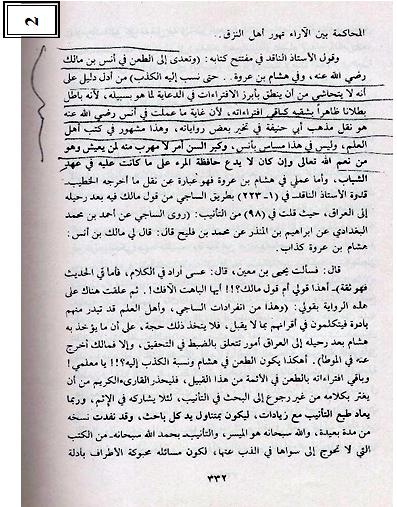 2
المحاكمة بين الآراء تهور أهل النزق..
وقول الأستاذ الناقد في مفتتح كتابه: (وتعدى إلى الطعن في أنس بن مالك
رضي الله عنه، وفي هشام بن عروة.. حتى نسب إليه الكذب) من أدل دليل على
أنه لا يتحاشى من أن ينطق بأبرز الافتراءات في الدعاية لما هو بسبيله، لأنه باطل
بطلانا ظاهراً بشقيه كباقي افتراءاته، لأن غاية ما عملت في أنس رضي الله عنه
هو نقل مذهب أبي حنيفة في تخير بعض رواياته، وهذا مشهور في كتب أهل
العلم، وليس في هذا مساس بأنس، وكبر السن أمر لا مهرب منه لمن يعيش وهو
من نعم الله تعالى وإن كان لا يدع حافظة المرء على ما كانت عليه في عهد
الشباب، وأما عملي في هشام بن عروة فهو عبارة عن نقل ما أخرجه الخطيب
قدوة الأستاذ الناقد في (١-٢٢٣) بطريق الساجي من قول مالك فيه بعد رحيله
إلى العراق، حيث قلت في (٩٨) من التأنيب: (روى الساجي عن أحمد بن محمد
البغدادي عن ابراهيم بن المنذر عن محمد بن فليح قال: قال لي مالك بن أنس:
هشام بن عروة كذاب.
قال: فسألت يحيى بن معين، قال: عسى أراد في الكلام، فأما في الحديث
فهو ثقة)ـ أهذا قولي أم قول مالك؟!! أيها الباهت الأفاك!. ثم علقت هناك على
هذه الرواية بقولي: (وهذا من انفرادات الساجي، وأهل العلم قد تبدر منهم
بادرة فيتكلمون في أقرانهم بما لا يقبل، فلا يتخذ ذلك حجة، على أن ما يؤخذ به
هشام بعد رحيله إلى العراق أمور تتعلق بالضبط في التحقيق، وإلا فمالك أخرج
عنه في الموطأ). أهكذا يكون الطعن في هشام ونسبة الكذب إليه؟!! يا معلمي!
وباقي افتراءاته بالطعن في الأئمة من هذا القبيل، فليحذر القارىء الكريم من أن
يغتر بكلامه من غير رجوع إلى البحث في التأنيب، لئلا يشاركه في الإثم، وربما
يعاد طبع التأنيب مع زيادات، ليكون بمتناول يد كل باحث، وقد نفدت نسخه
من مدة بعيدة، والله سبحانه هو الميسر، والتأنيب بحمد الله سبحانه من الكتب
التي لا تحوج إلى سواها في الذب عنها، لكون مسائله محبوكة الأطراف بأدلة
٣٣٢